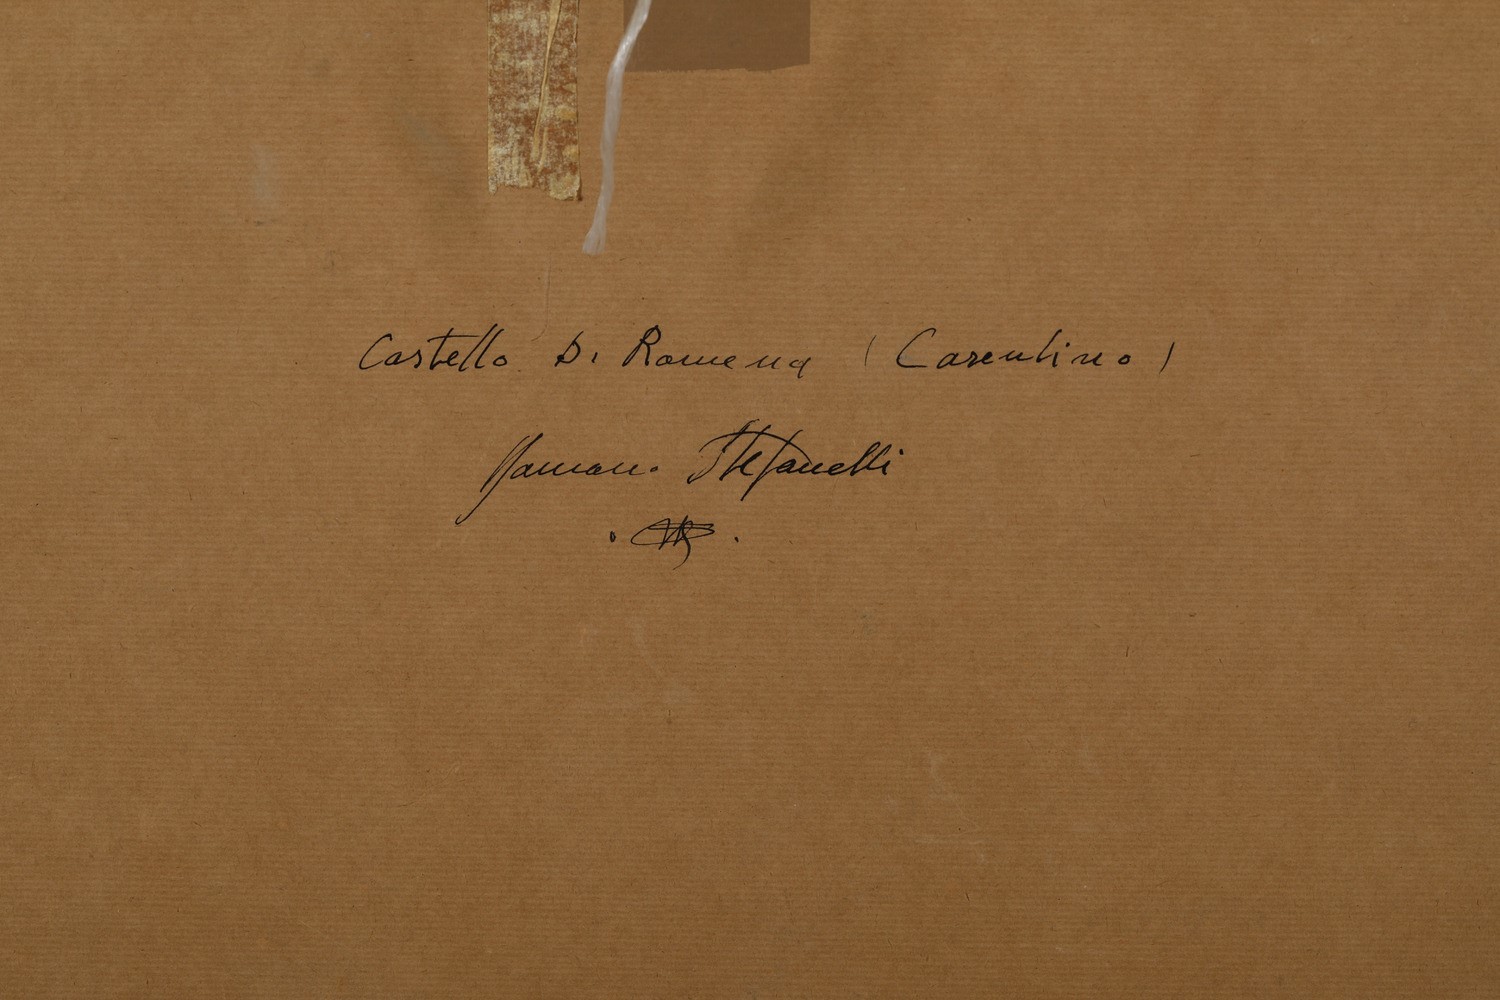 Castello Di Romena (Casentino)
Romano Stefanelli